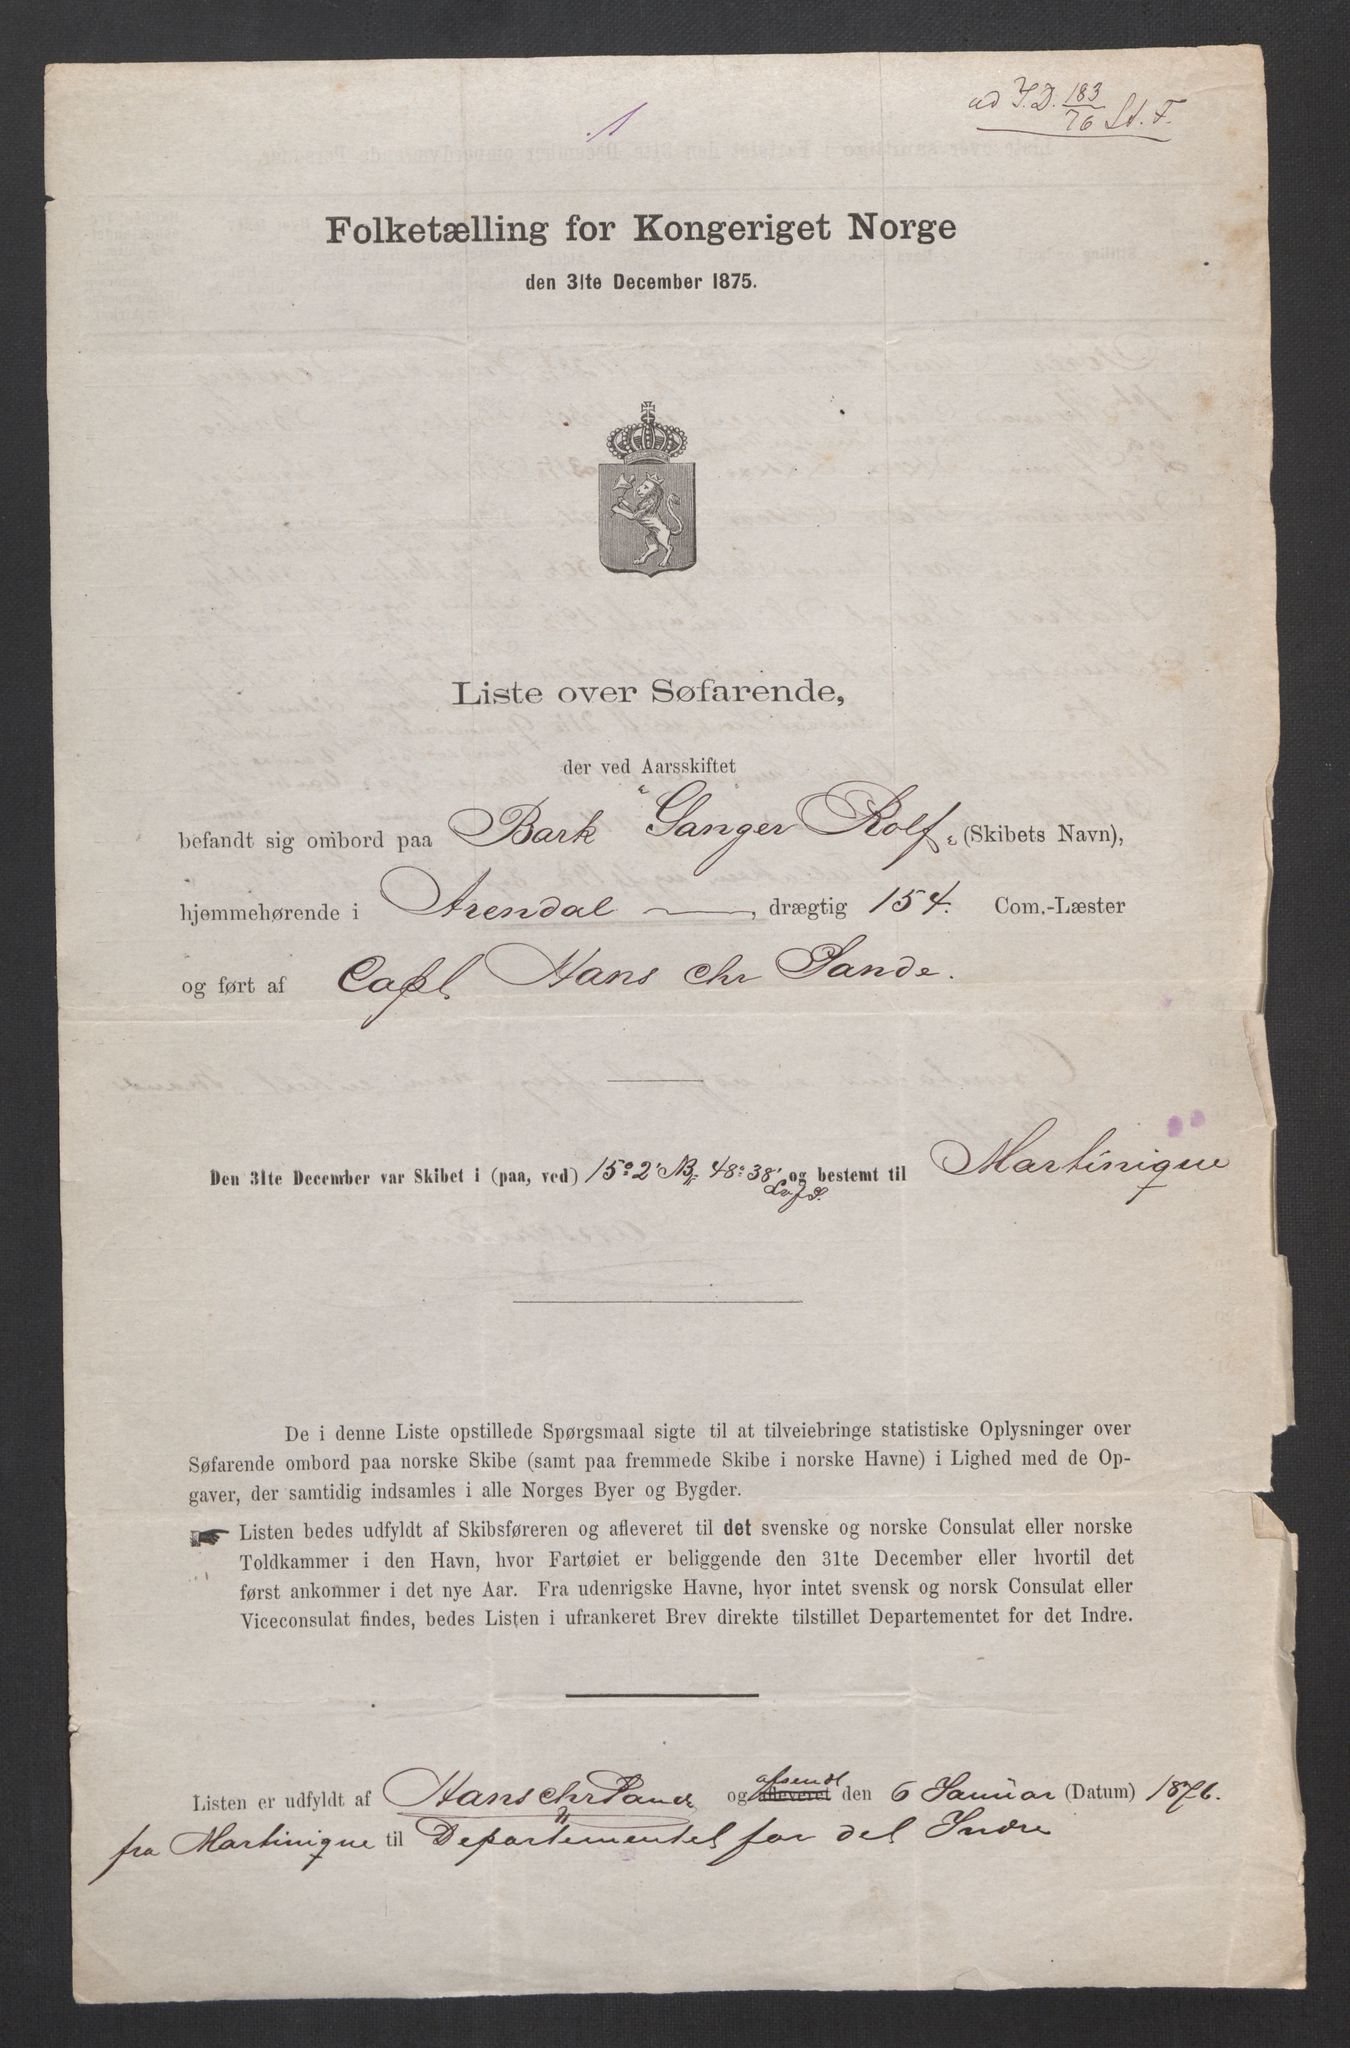 1
ad I.D. 183/76 St. F.
Folketælling for Kongeriget Norge
den 31te December 1875.
Liste over Søfarende,
der ved Aarsskiftet
befandt sig ombord paa Bark "Sanger Rolf" (Skibets Navn),
hjemmehørende i Arendal —, drægtig 154. Com.-Læster
og ført af Capt Hans Chr Sande.
Den 31te December var Skibet i (paa, ved) 15° 2' NB, 48° 38' og bestemt til Martinique
De i denne Liste opstillede Spørgsmaal sigte til at tilveiebringe statistiske Oplysninger over
Søfarende ombord paa norske Skibe (samt paa fremmede Skibe i norske Havne) i Lighed med de Op-
gaver, der samtidig indsamles i alle Norges Byer og Bygder.
Listen bedes udfyldt af Skibsføreren og afleveret til det svenske og norske Consulat eller norske
Toldkammer i den Havn, hvor Fartøiet er beliggende den 31te December eller hvortil det
først ankommer i det nye Aar. Fra udenrigske Havne, hvor intet svensk og norsk Consulat eller
Viceconsulat findes, bedes Listen i ufrankeret Brev direkte tilstillet Departementet for det Indre.
afsendt
Listen er udfyldt af Hans Chr Sande og afleveret den 6 Januar (Datum) 1876.
fra Martinique til Departementet for det Indre